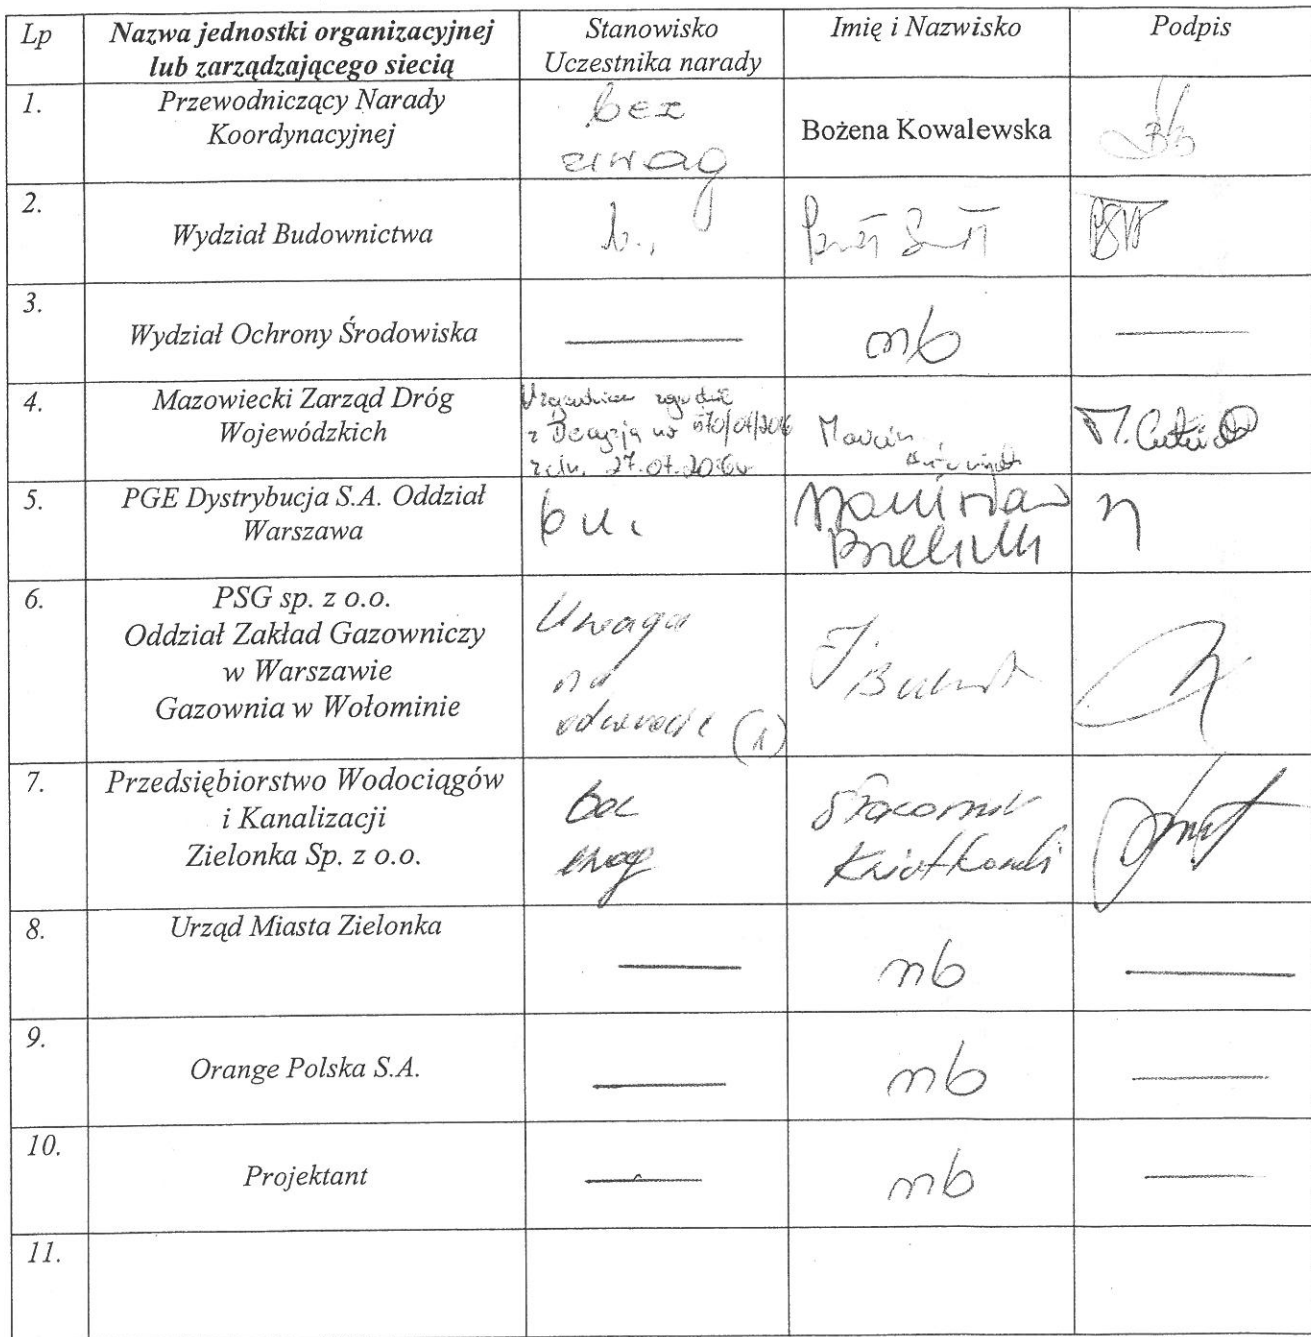 Lp
Nazwa jednostki organizacyjnej
lub zarządzającego siecią
Stanowisko
Uczestnika narady
Imię i Nazwisko
Podpis
1.
Przewodniczący Narady
Koordynacyjnej
bez
uwag
Bożena Kowalewska
2.
Wydział Budownictwa
3.
Wydział Ochrony Środowiska
nb
4.
Mazowiecki Zarząd Dróg
Wojewódzkich
Uzgodnione zgodnie
z Decyzją nr
z dn. 27.07.2016r
Marcin
M.
5.
PGE Dystrybucja S.A. Oddział
Warszawa
b u.
Stanisław
6.
PSG sp. z o.o.
Oddział Zakład Gazowniczy
w Warszawie
Gazownia w Wołominie
Uwaga
na
odwrocie (1)
7.
Przedsiębiorstwo Wodociągów
i Kanalizacji
Zielonka Sp. z o.o.
bez
uwag
Kwiatkowski
8.
Urząd Miasta Zielonka
nb
9.
Orange Polska S.A.
nb
10.
Projektant
nb
11.